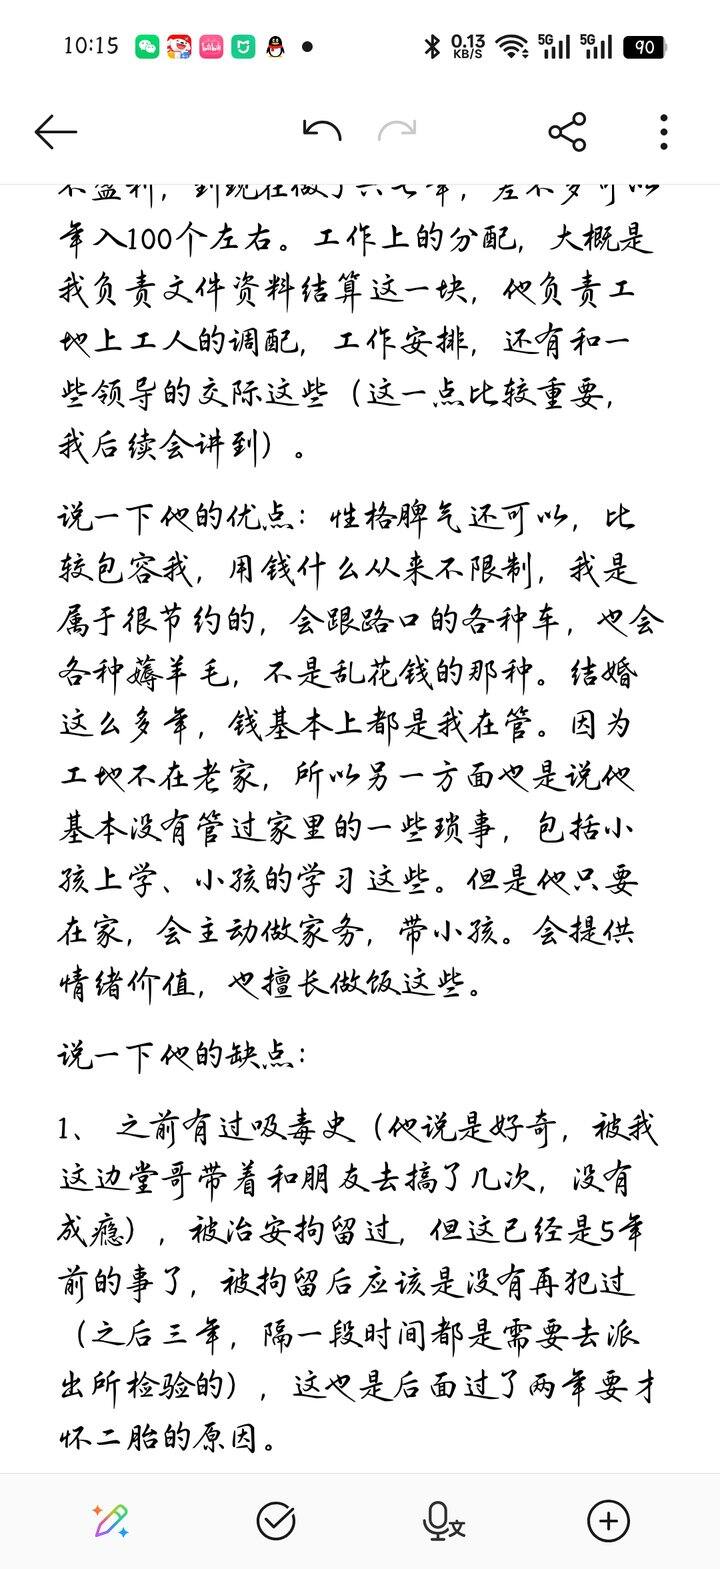 10:15
0.13
KB/S
5G
5G
90
不盈利，到现在做了六七年，差不多可以
年入100个左右。工作上的分配，大概是
我负责文件资料结算这一块，他负责工
地上工人的调配，工作安排，还有和一
些领导的交际这些（这一点比较重要，
我后续会讲到）。
说一下他的优点：性格脾气还可以，比
较包容我，用钱什么从来不限制，我是
属于很节约的，会跟路口的各种车，也会
各种薅羊毛，不是乱花钱的那种。结婚
这么多年，钱基本上都是我在管。因为
工地不在老家，所以另一方面也是说他
基本没有管过家里的一些琐事，包括小
孩上学、小孩的学习这些。但是他只要
在家，会主动做家务，带小孩。会提供
情绪价值，也擅长做饭这些。
说一下他的缺点：
1、 之前有过吸毒史（他说是好奇，被我
这边堂哥带着和朋友去搞了几次，没有
成瘾），被治安拘留过，但这已经是5年
前的事了，被拘留后应该是没有再犯过
（之后三年，隔一段时间都是需要去派
出所检验的），这也是后面过了两年要才
怀二胎的原因。
文